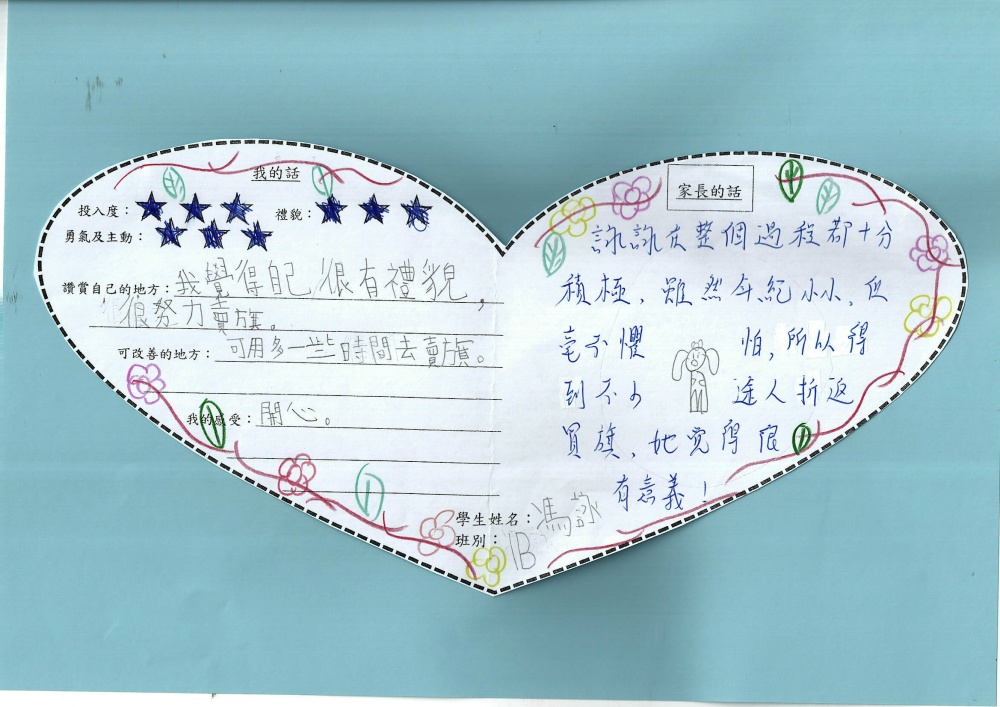 我的話
投入度：★ ★ ★ 禮貌：★ ★ ★
勇氣及主動：★ ★ ★
讚賞自己的地方：我覺得自己很有禮貌，
很努力賣旗。
可改善的地方：可用多一些時間去賣旗。
我的感受：開心。
家長的話
詠詠在整個過程都十分
積極，雖然年紀小小，但
毫不懼怕，所以得
到不少途人折返
買旗，她覺得很
有意義！
學生姓名：馮詠
班別：1B